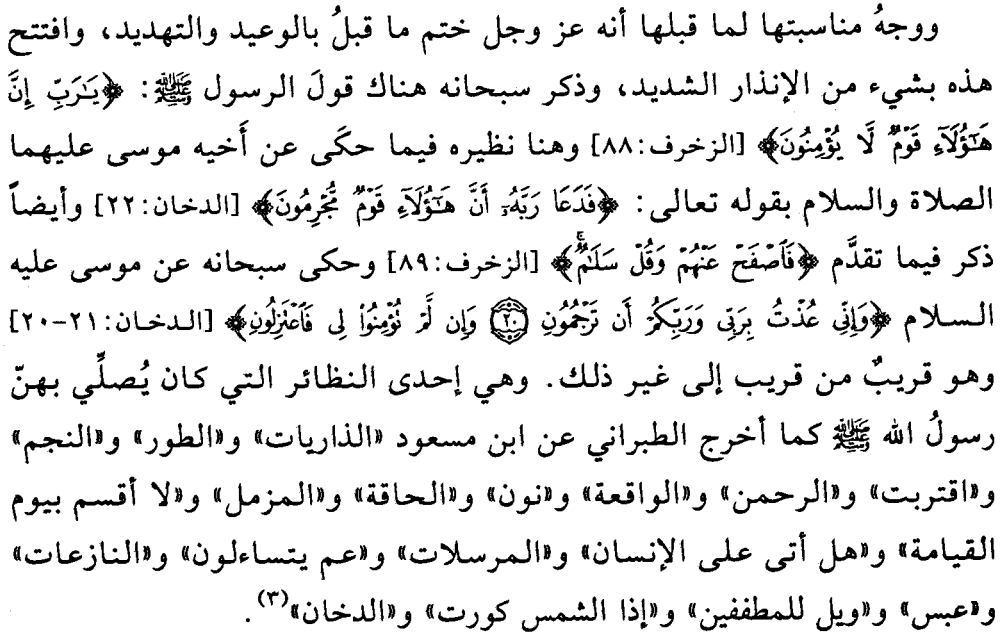 ووجهُ مناسبتها لما قبلها أنه عز وجل ختم ما قبلُ بالوعيد والتهديد، وافتتح
هذه بشيء من الإنذار الشديد، وذكر سبحانه هناك قولَ الرسول ﷺ: ﴿يَٰرَبِّ إِنَّ
هَٰٓؤُلَآءِ قَوۡمٞ لَّا يُؤۡمِنُونَ﴾ [الزخرف:٨٨] وهنا نظيره فيما حكَى عن أَخيه موسى عليهما
الصلاة والسلام بقوله تعالى: ﴿فَدَعَا رَبَّهُۥٓ أَنَّ هَٰٓؤُلَآءِ قَوۡمٞ مُّجۡرِمُونَ﴾ [الدخان:٢٢] وأيضاً
ذكر فيما تقدَّم ﴿فَٱصۡفَحۡ عَنۡهُمۡ وَقُلۡ سَلَٰمٞۚ﴾ [الزخرف:٨٩] وحكى سبحانه عن موسى عليه
السلام ﴿وَإِنِّي عُذۡتُ بِرَبِّي وَرَبِّكُمۡ أَن تَرۡجُمُونِ ۝٢٠ وَإِن لَّمۡ تُؤۡمِنُواْ لِي فَٱعۡتَزِلُونِ﴾ [الدخان:٢١-٢٠]
وهو قريبٌ من قريب إلى غير ذلك. وهي إحدى النظائر التي كان يُصلِّي بهنّ
رسولُ الله ﷺ كما أخرج الطبراني عن ابن مسعود «الذاريات» و«الطور» و«النجم»
و«اقتربت» و«الرحمن» و«الواقعة» و«نون» و«الحاقة» و«المزمل» و«لا أقسم بيوم
القيامة» و«هل أتى على الإنسان» و«المرسلات» و«عم يتساءلون» و«النازعات»
و«عبس» و«ويل للمطففين» و«إذا الشمس كورت» و«الدخان»(٣).